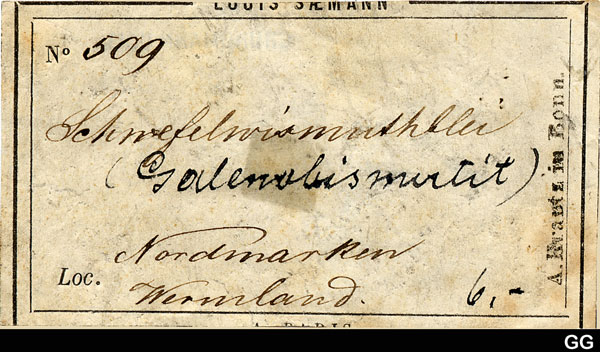 LOUIS SÆMANN
Nº 509
Schwefelwismuthblei
(Galenobismutit)
Loc. Nordmarken
Wermland.
6,-
A PARIS
A. Krantz in Bonn.
GG